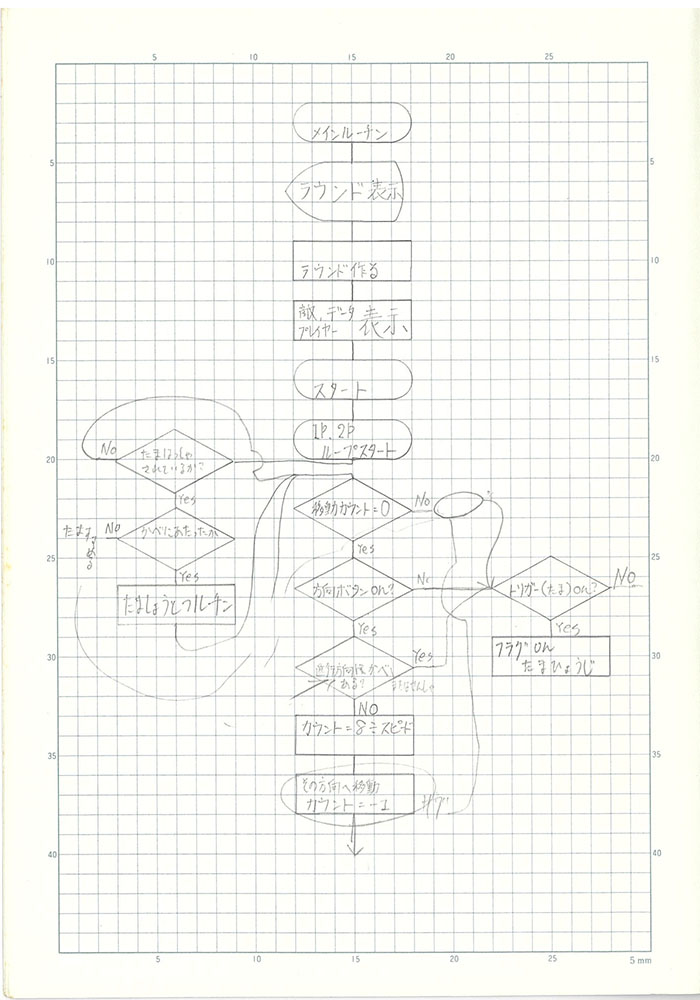 5
10
15
20
25
メインルーチン
5
5
ラウンド表示
10
10
ラウンド作る
敵、データ
プレイヤー
表示
15
15
スタート
1P.2P
ループスタート
20
20
No
たまはっしゃ
されているか?
Yes
移動カウント=0
No
Yes
No
かべにあたったか
たますすめる
25
25
Yes
方向ボタンon?
No
トリガー(たま)on?
No
たましょうとつルーチン
Yes
Yes
フラグon
たまひょうじ
30
30
進行方向にかべ
ある?
Yes
NO
カウント=8÷スピード
35
35
その方向へ移動
カウント=-1
40
40
5
10
15
20
25
5mm